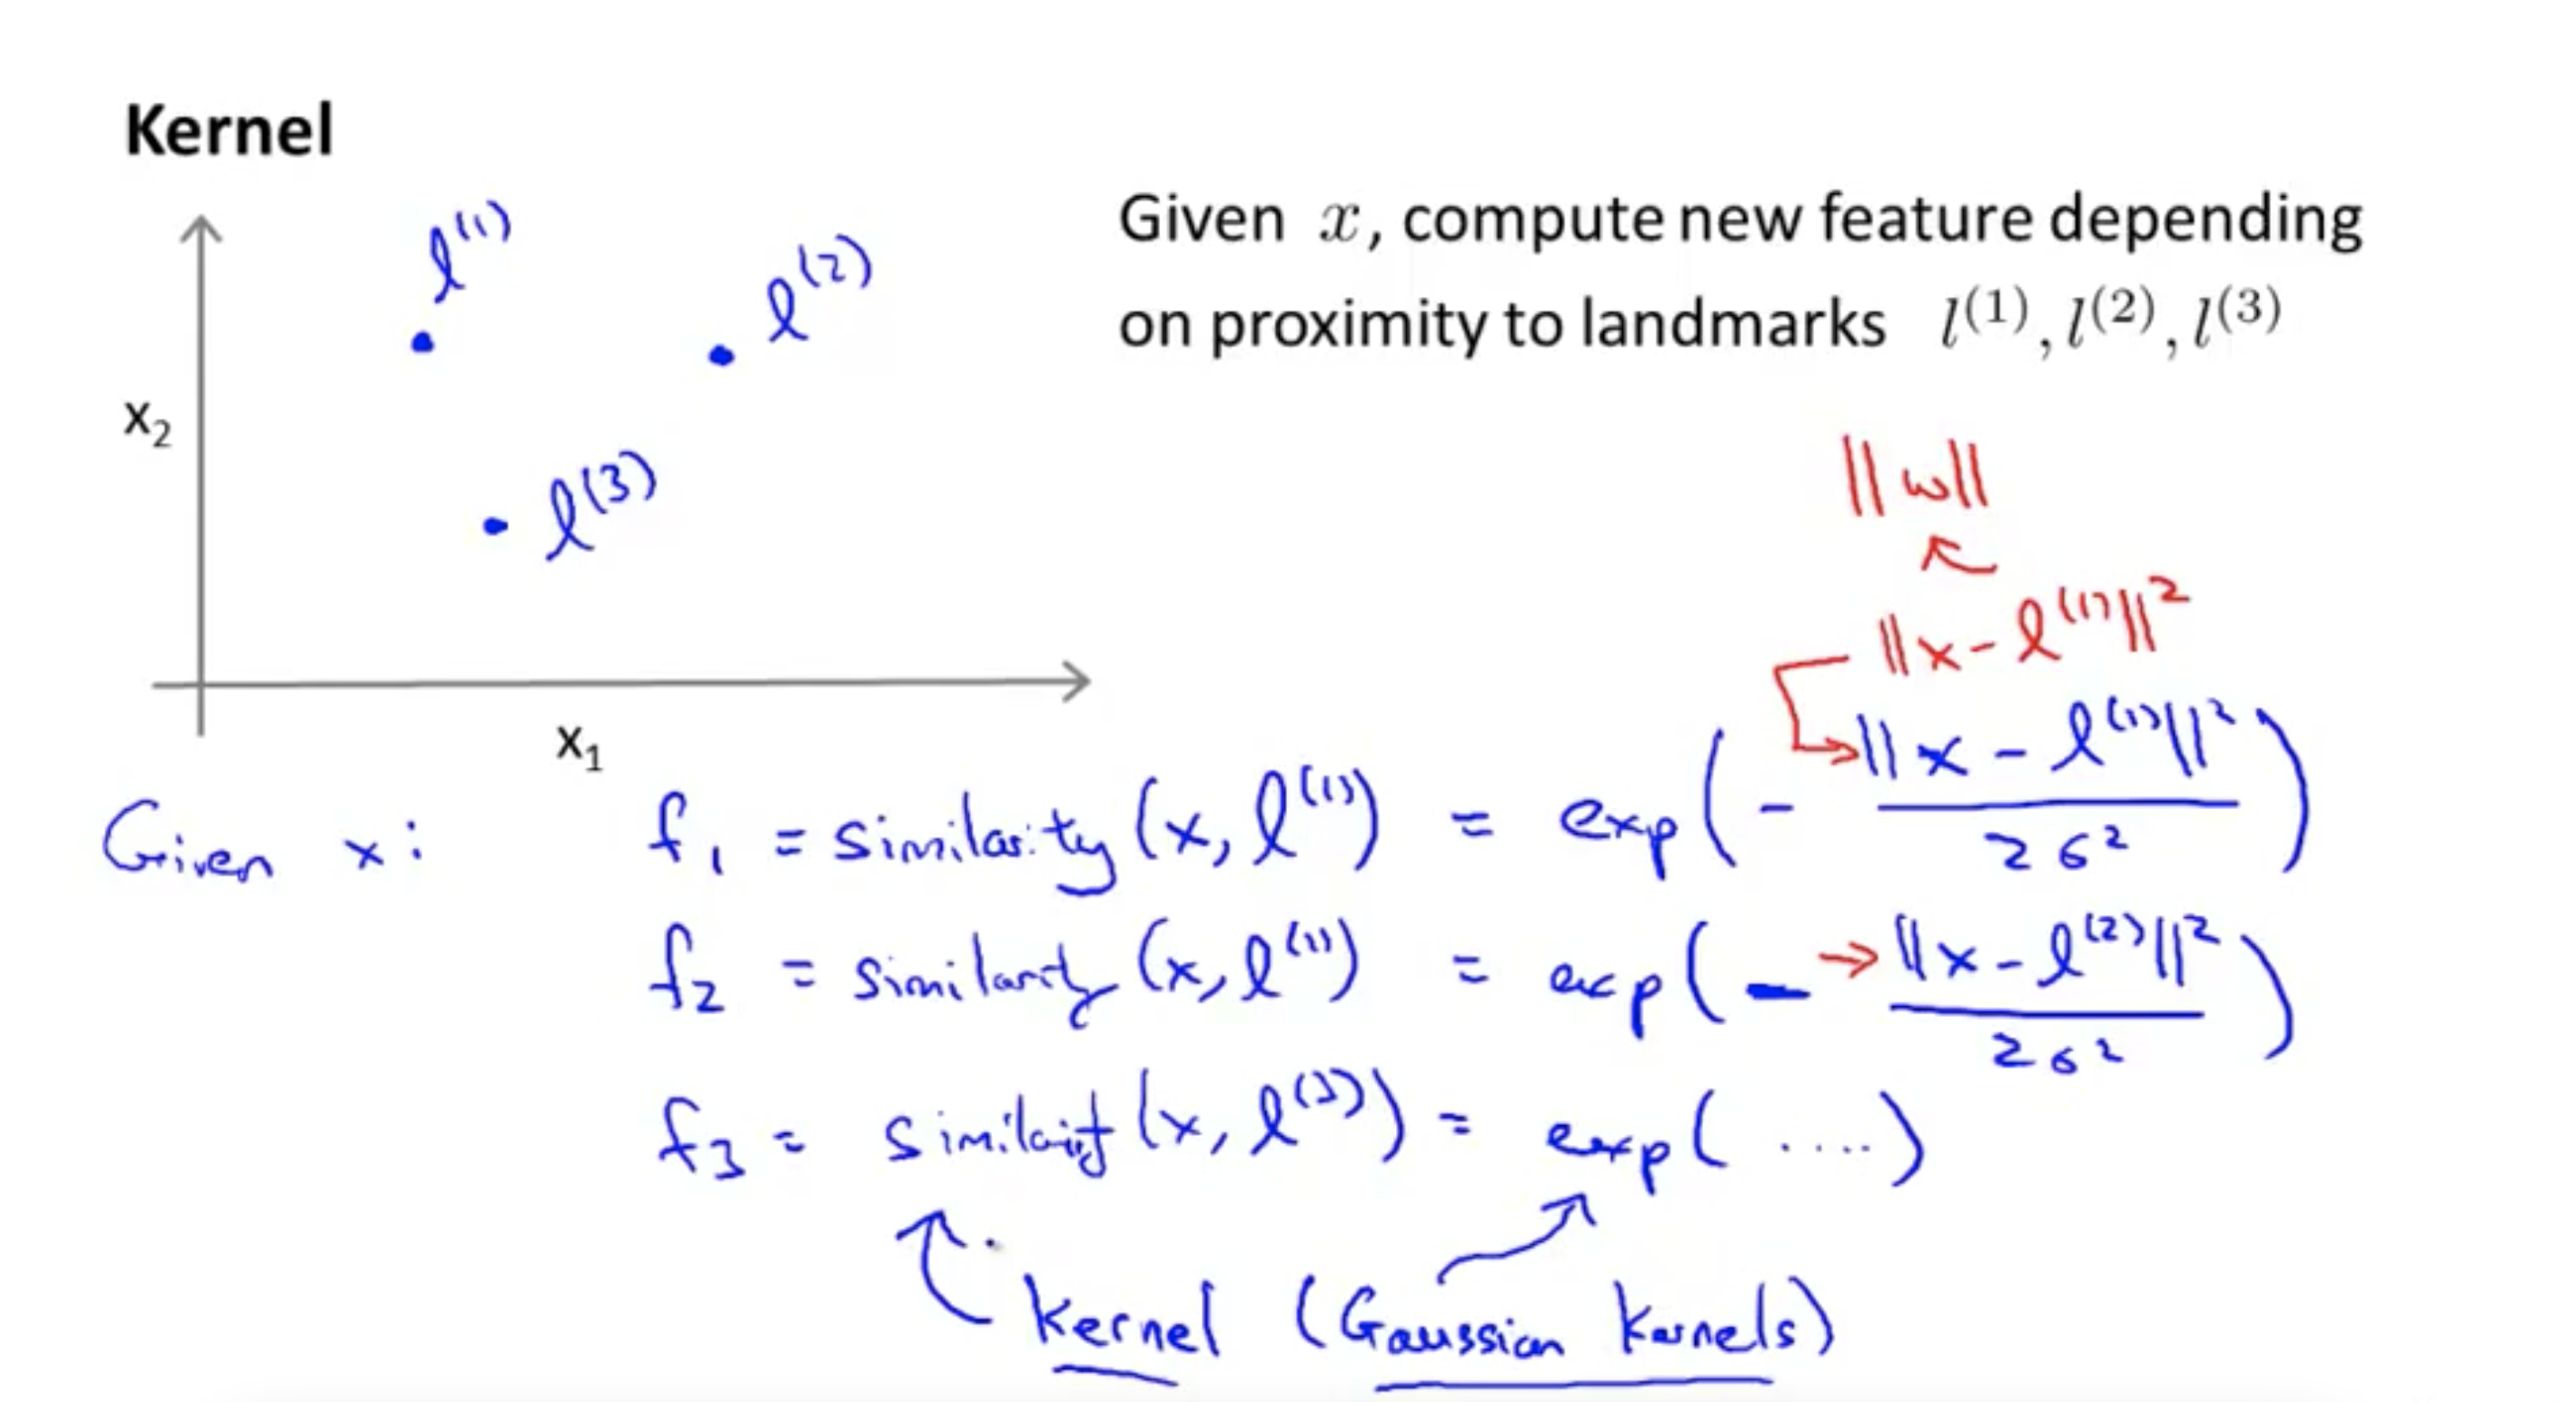 Kernel
l⁽¹⁾
l⁽²⁾
x₂
l⁽³⁾
x₁
Given x, compute new feature depending
on proximity to landmarks l⁽¹⁾, l⁽²⁾, l⁽³⁾
||w||
||x - l⁽¹⁾||²
Given x: f₁ = similarity (x, l⁽¹⁾) = exp(- ||x - l⁽¹⁾||² / 2σ²)
f₂ = similarity (x, l⁽¹⁾) = exp(- ||x - l⁽²⁾||² / 2σ²)
f₃ = similarity (x, l⁽³⁾) = exp( ....)
kernel (Gaussian kernels)